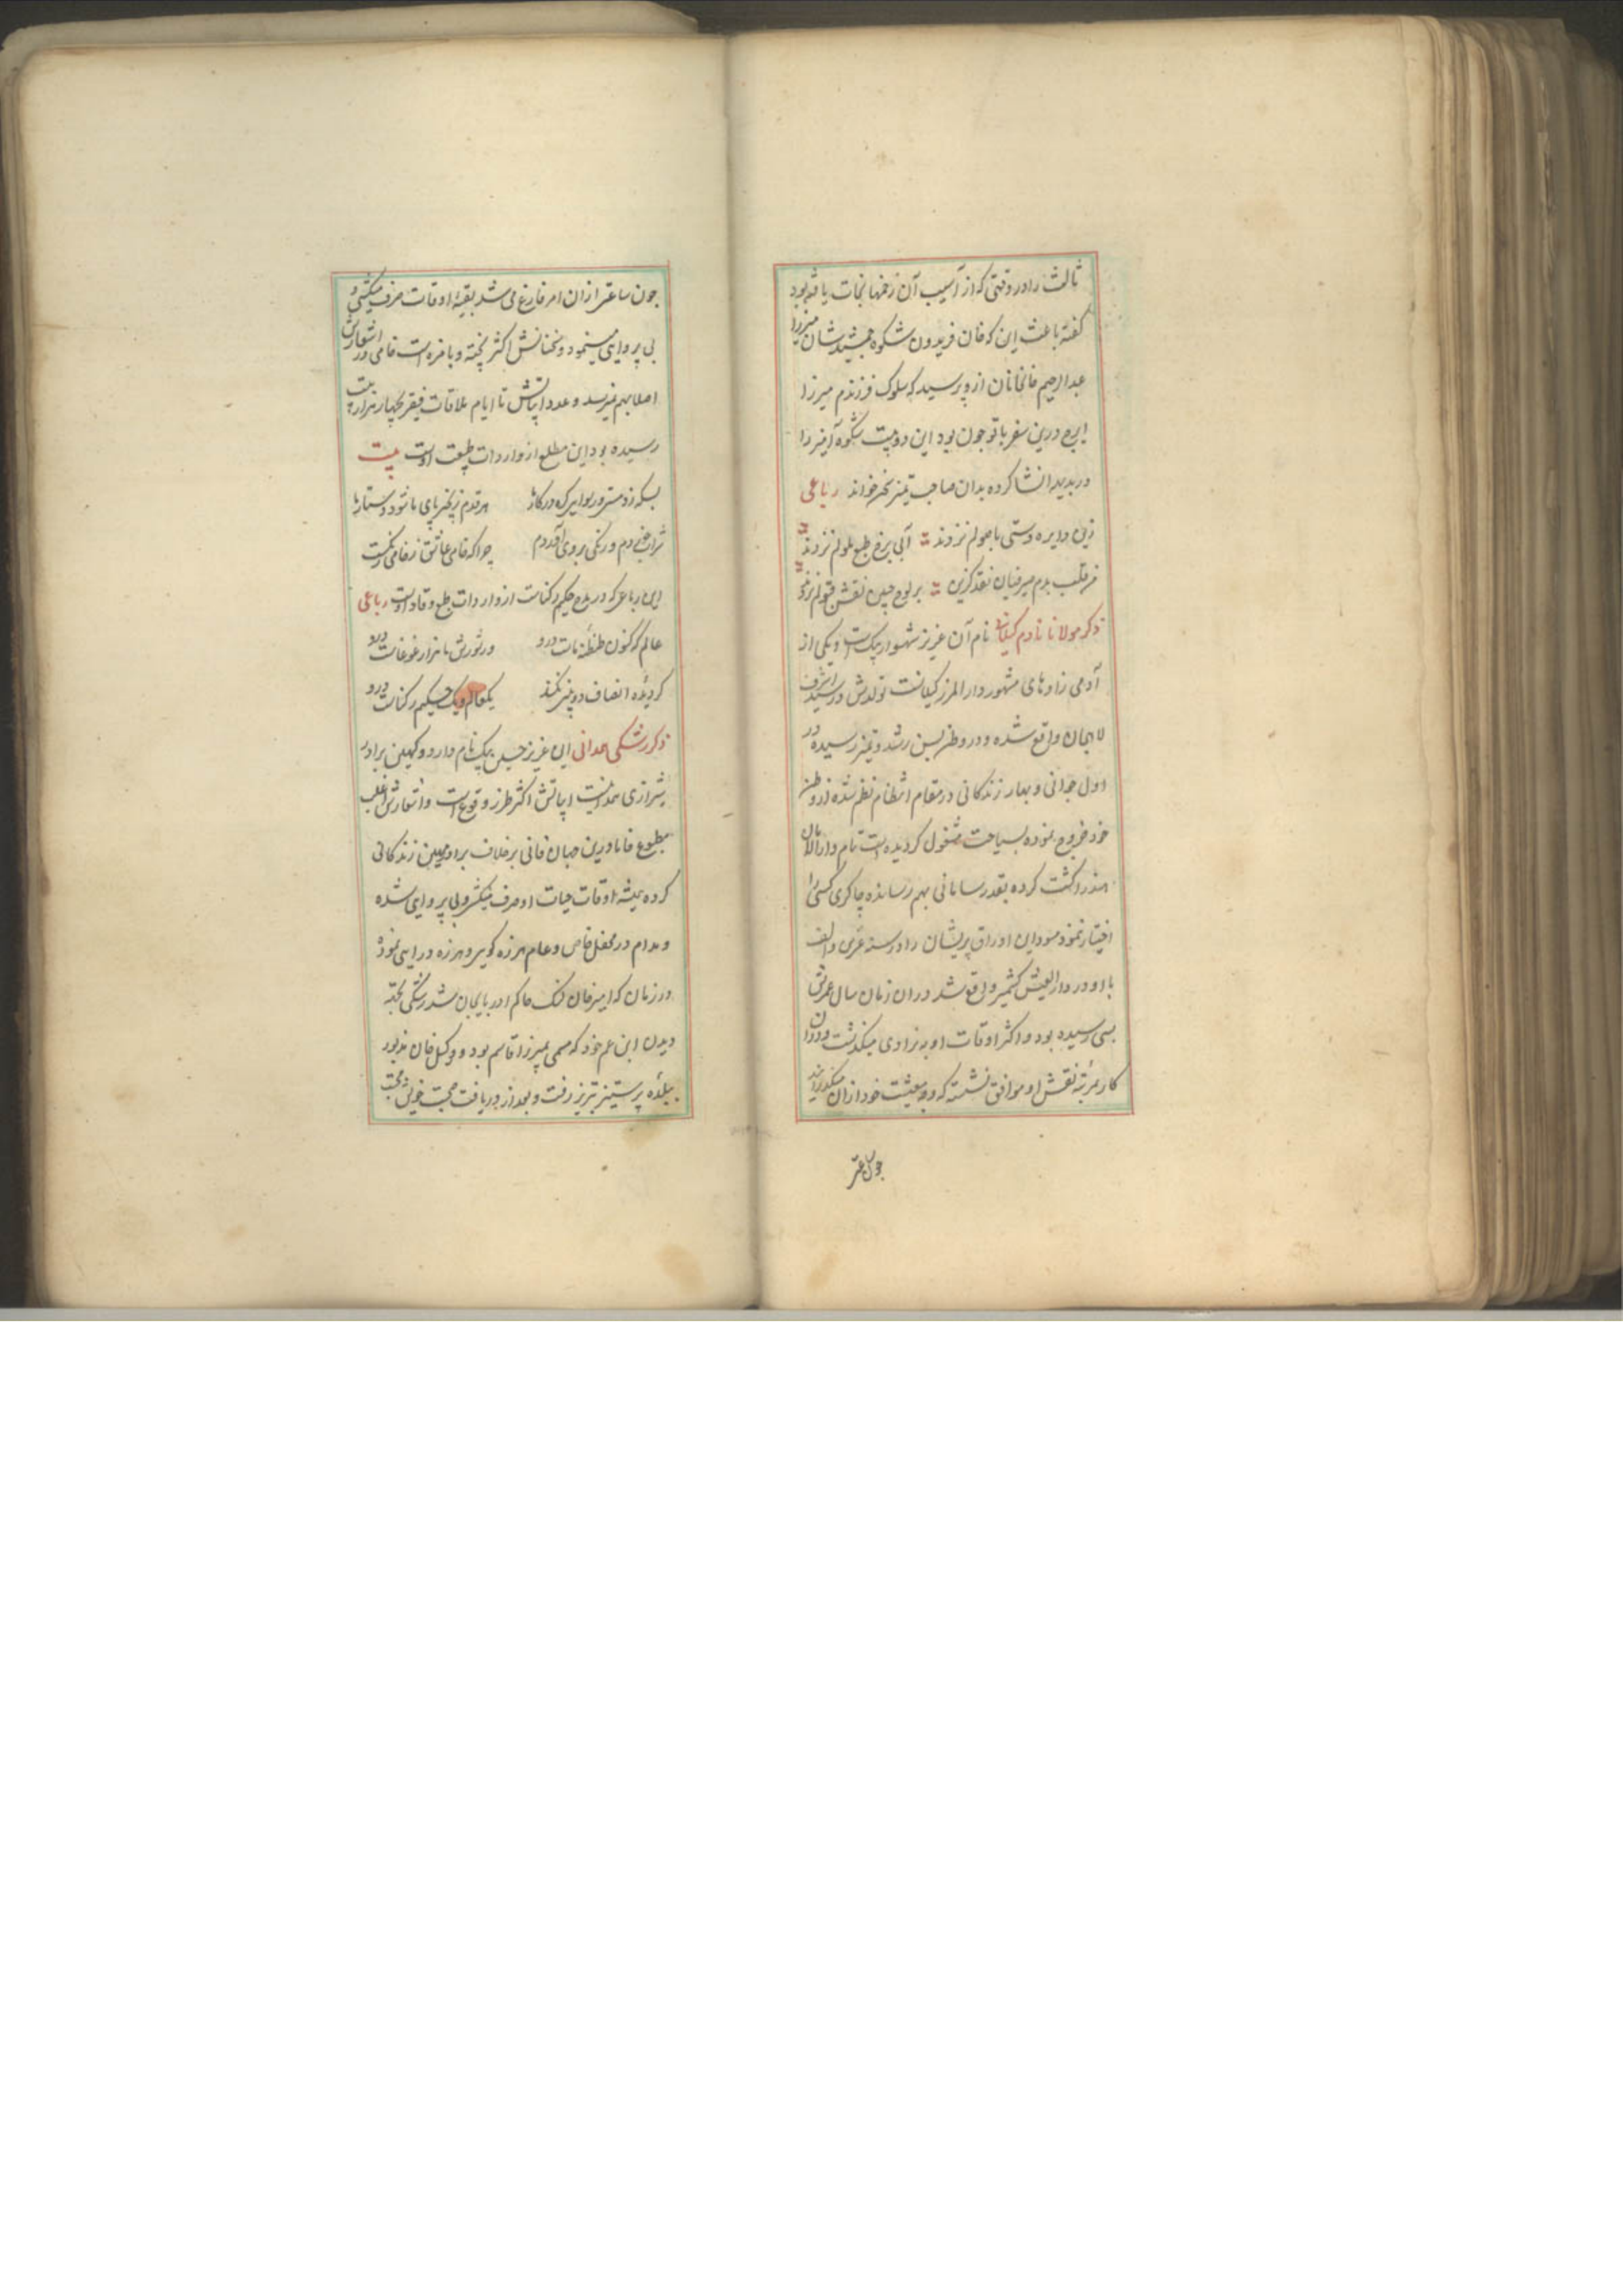 ثالث را در وقتی که از آسیب آن زخمها نجات یافته بود
گفته باعث این که خان فریدون شکوه جمشید نشان میرزا
عبدالرحیم خانخانان ازو پرسید که سلوک فرزندم میرزا
ایرج درین سفر با تو چون بود این دو بیت شکوه آمیز را
در بدیهه انشا کرده بدان صاحب تمیز خواند رباعی
زین دایره دستی باصولم نزدند آبی برخ طبع ملولم نزدند
قلب بدم صرفیان نقد گزین بر لوح جبین نقش قبولم نزدند
ذکر مولانا نادم گیلانی نام آن عزیز شهسوار بیک است و یکی از
آدمی زادهای مشهور دارالمرز گیلانست تولدش در
لاهجان واقع شده و در وطن بسن رشد و تمیز رسیده در
اول جوانی و بهار زندگانی در مقام انتظام نظم شده از وطن
خود خروج نموده بسیاحت مشغول گردیده است تمام دارالامان
هند را گشت کرده بقدر سامانی بهم رسانده چاکری کسی را
اختیار ننمود مسود این اوراق پریشان را در سنه عشرین و الف
با او در دارالعیش کشمیر ملاقات واقع شد در ان زمان سال عمرش
بسی رسیده بود و اکثر اوقات او به نرادی میگذشت و در ان
کار بمرتبه نقش او موافق نشسته که وجه معیشت خود ازان میگذرانید
چون ساعتی
چون ساعتی ازان امر فارغ می شد بقیه اوقات صرف میکشی و
بی پروایی مینمود و سخنانش اکثر پخته و بامزه است خامی در اشعارش
اصلا بهم نمیرسد و عدد ابیاتش تا ایام ملاقات فقیر بچهار هزار بیت
رسیده بود این مطلع از واردات طبیعت اوست بیت
هر قدم زنجیر پای ما شود دستارها
شراب خوردم و رنگی بروی آوردم چرا که خامی عاشق ز خامی رنگست
این رباعی که در مدح حکیم رکناست از واردات طبع وقاد اوست رباعی
عالم که کنون طنطنه مات درو در شورش ما هزار غوغاست درو
گر دیده انصاف دو بینی نکند یک عالم و یک حکیم رکناست درو
ذکر رشکی همدانی این عزیز حسین بیک نام دارد و کهین برادر
شیرازی همدانیست ابیاتش اکثر طرز وقوع است و اشعارش اغلب
مطبوع فاما درین جهان فانی برخلاف برادر مهین زندگانی
کرده همیشه اوقات حیات او صرف میکشی و بی پروایی شده
و مدام در محفل خاص و عام هرزه گویی و هرزه درایی نموده
در زمان که امیر خان لنگ حاکم ادربایجان شد رشکی بجهة
دیدن ابن عم خود که مسمی بمیرزا قاسم بود و وکیل خان مذبور
ببلده تبریز رفت و بعد از دریافت صحبت خویش